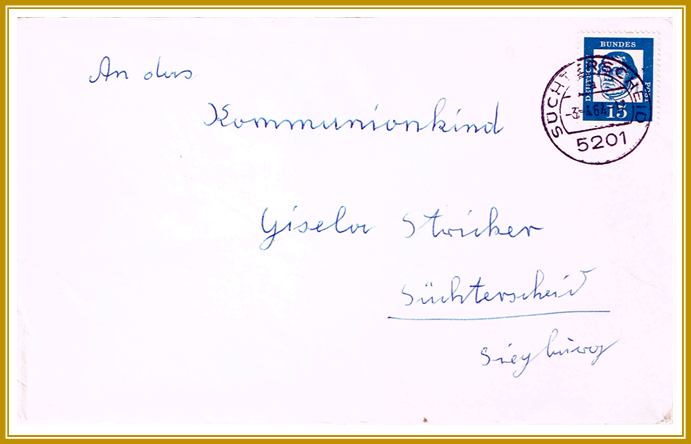 An das
Kommunionkind
Gisela Stricker
Süchterscheid
Siegburg
BUNDES
POST
15
SÜCHTERSCHEID
5201